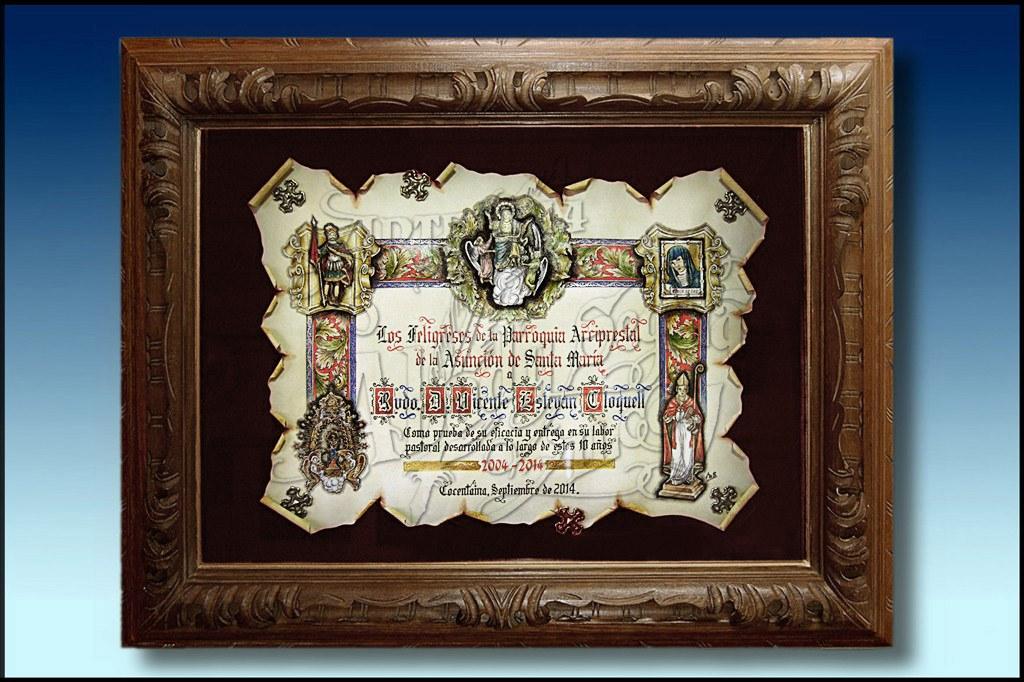 Los Feligreses de la Parroquia Arciprestal
de la Asunción de Santa María
a
Rvdo. D. Vicente Estevan Cloquell
Como prueba de su eficacia y entrega en su labor
pastoral desarrollada a lo largo de estos 10 años
2004 - 2014
Cocentaina, Septiembre de 2014.